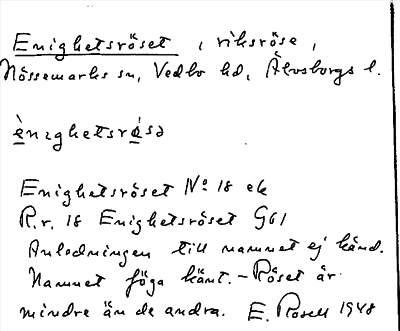 Enighetsröset, riksröse,
Nössemarks sn, Vedbo hd, Älvsborgs l.
ènighetsrǿsə
Enighetsröset No 18 ek
R.r. 18 Enighetsröset G61
Anledningen till namnet ej känd.
Namnet föga känt. - Röset är
mindre än de andra. E. Rosell 1948